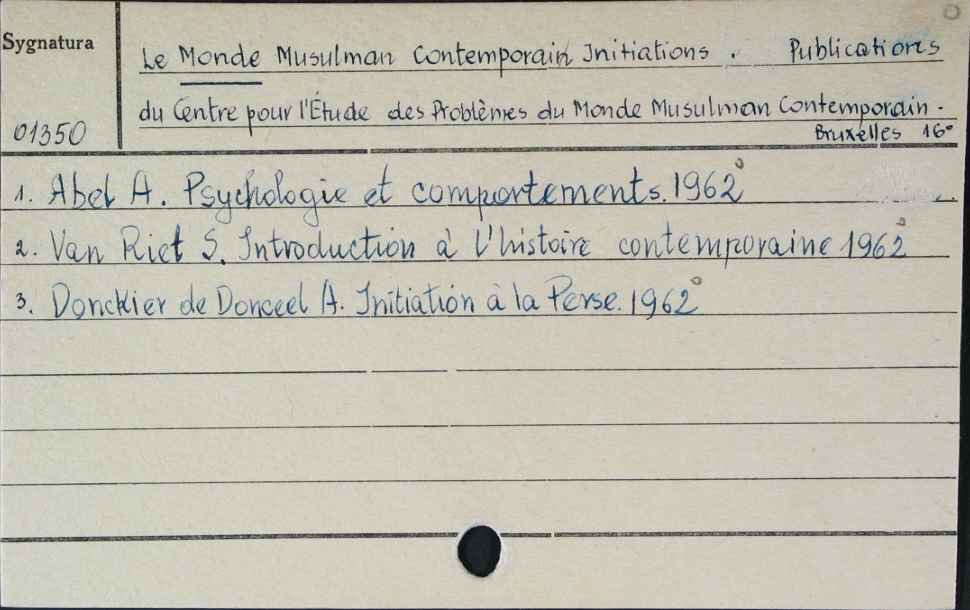 Sygnatura
Le Monde Musulman Contemporain Initiations . Publications
du Centre pour l'Étude des Problèmes du Monde Musulman Contemporain.
01350
Bruxelles 16°
1. Abel A. Psychologie et comportements. 1962°
2. Van Riet S. Introduction à l'histoire contemporaine 1962°
3. Donckier de Donceel A. Initiation à la Perse. 1962°